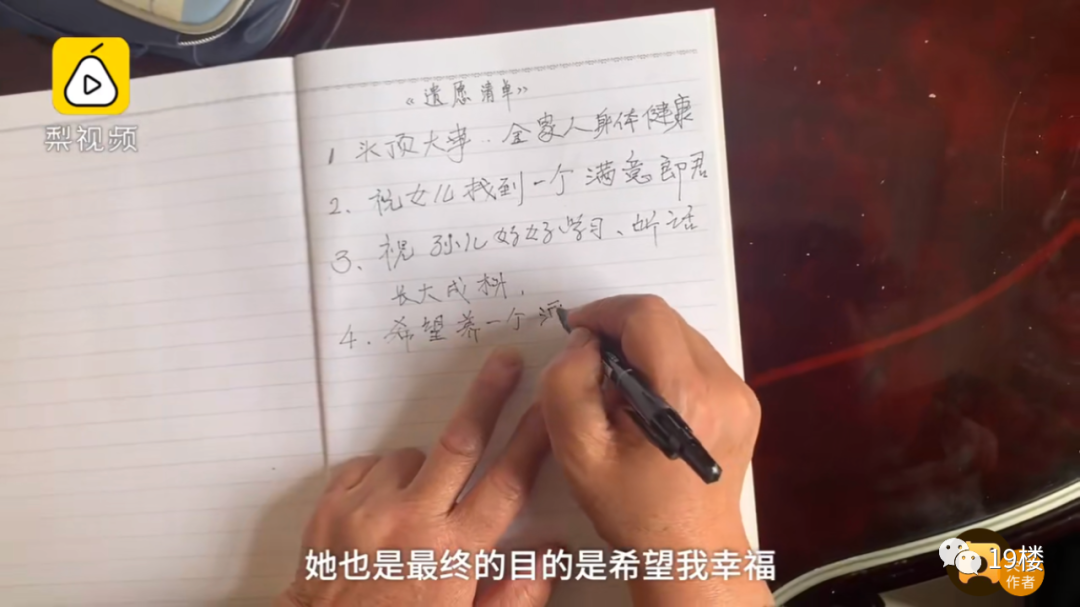 梨视频
《遗愿清单》
1 头顶大事..全家人身体健康
2、祝女儿找到一个满意郎君
3、祝孙儿好好学习、听话
长大成材.
4、希望养一个
她也是最终的目的是希望我幸福
19楼
作者